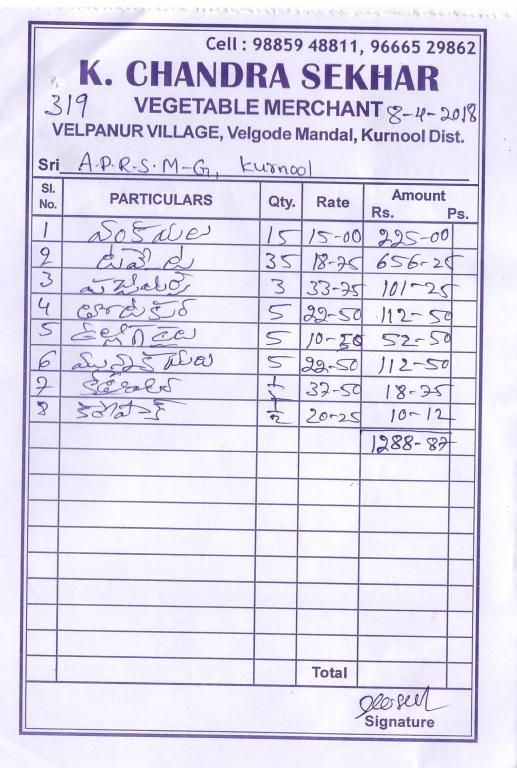 Cell : 98859 48811, 96665 29862
K. CHANDRA SEKHAR
319 VEGETABLE MERCHANT 8-4-2018
VELPANUR VILLAGE, Velgode Mandal, Kurnool Dist.
Sri A.P.R.S.M-G, Kurnool
Sl. No. PARTICULARS Qty. Rate Amount Rs. Ps.
1 వంకాయలు 15 15-00 225-00
2 టమోటు 35 18-75 656-25
3 3 33-75 101-25
4 5 22-50 112-50
5 5 10-50 52-50
6 మునక్కాయలు 5 22-50 112-50
7 1/2 37-50 18-75
8 1/2 20-25 10-12
1288-87
Total
Signature